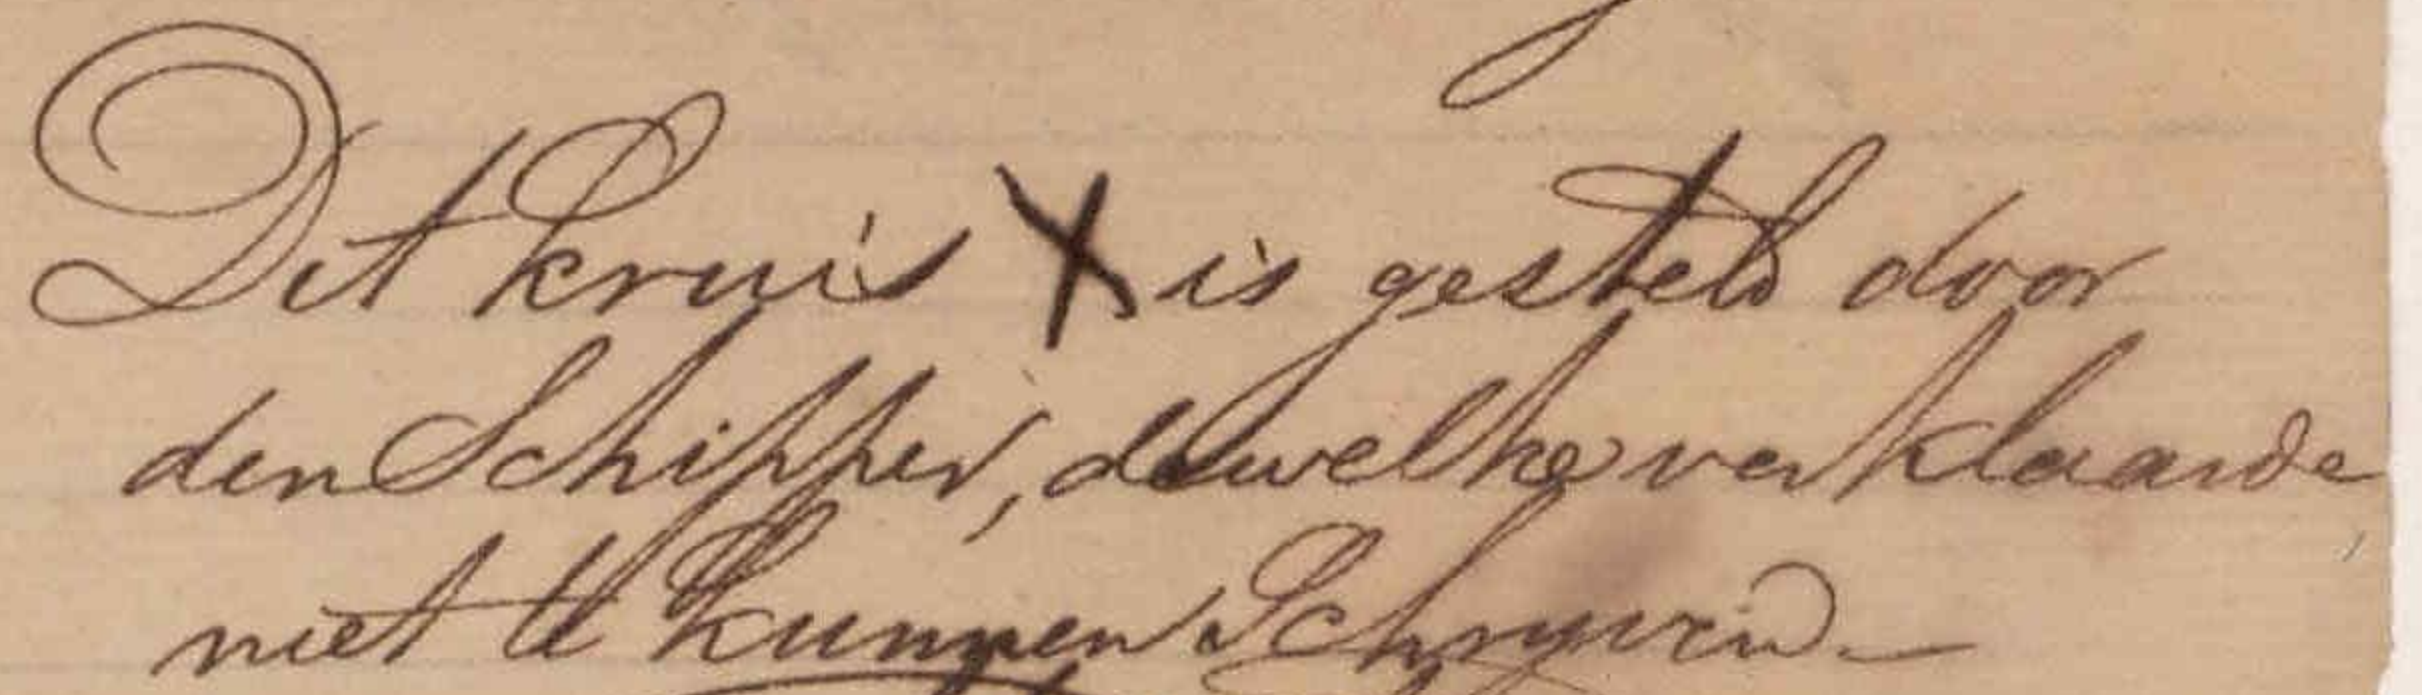 Dit kruis X is gesteld door
den Schipper, dewelke verklaarde
niet te kunnen Schryven